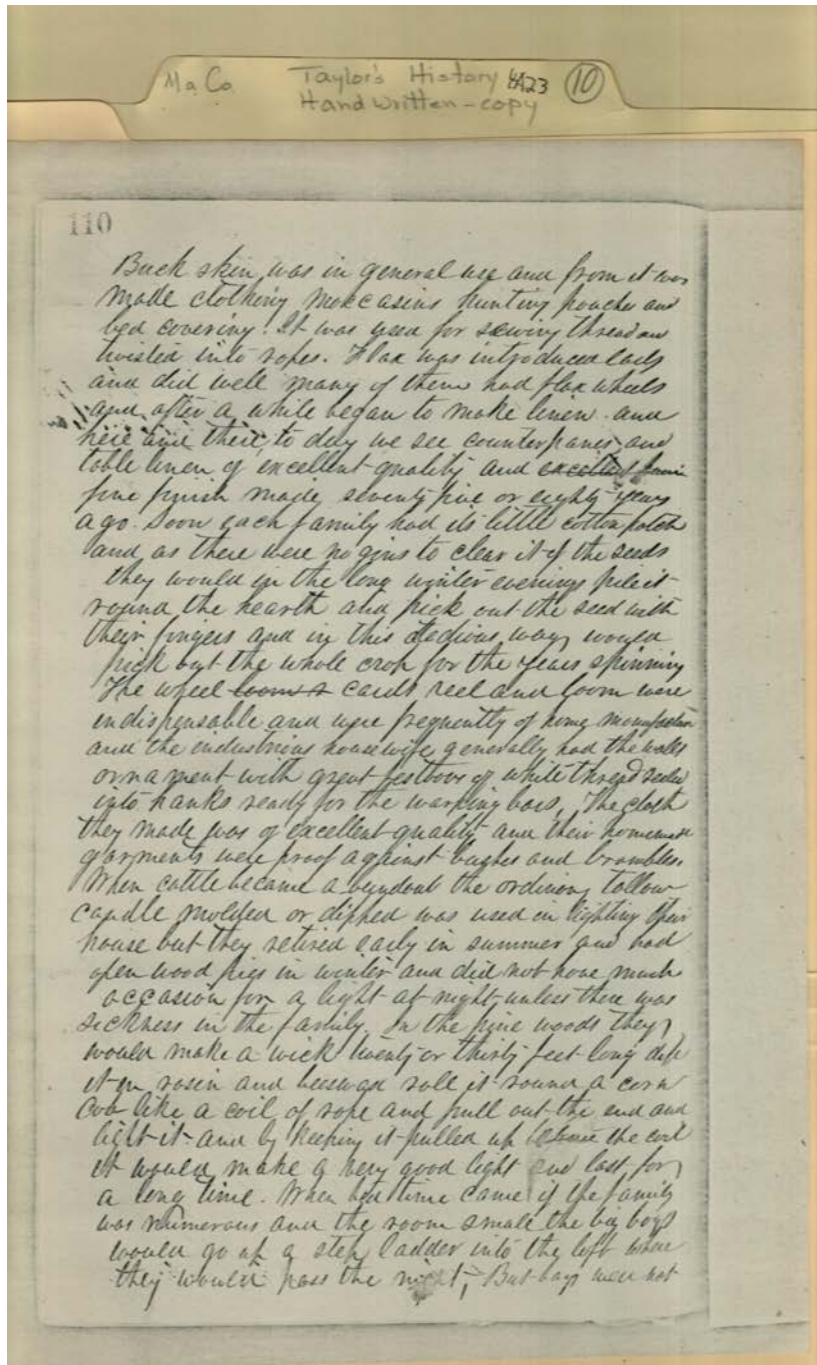 Ma Co Taylor's History 4A23 10
Hand written - copy
110
Buck skin was in general use and from it was
made clothing moccasins hunting pouches and
bed covering. It was used for sewing thread and
twisted into ropes. Flax was introduced early
and did well many of them had flax wheels
and after a while began to make linen and
here and there, to day we see counterpanes and
table linen of excellent quality and excellent
fine finish made seventy five or eighty years
ago. Soon each family had its little cotton patch
and as there were no gins to clear it of the seeds
they would in the long winter evenings pile it
round the hearth and pick out the seed with
their fingers and in this tedious way would
pick out the whole crop for the years spinning
The wheel looms & cards reel and loom were
indispensable and were frequently of home manufacture
and the industrious housewife generally had the walls
ornament with great festoons of white thread
into hanks ready for the warping bars. The cloth
they made was of excellent quality and their homemade
garments were proof against bushes and brambles.
When cattle became abundant the ordinary tallow
candle molded or dipped was used in lighting their
house but they retired early in summer and had
open wood fires in winter and did not have much
occasion for a light at night unless there was
sickness in the family. In the pine woods they
would make a wick twenty or thirty feet long dip
it in rosin and beeswax roll it round a corn
cob like a coil of rope and pull out the end and
light it and by keeping it pulled up the coil
it would make a very good light and last for
a long time. When bed time came if the family
was numerous and the room small the big boys
would go up a step ladder into the loft where
they would pass the night, But boys were not